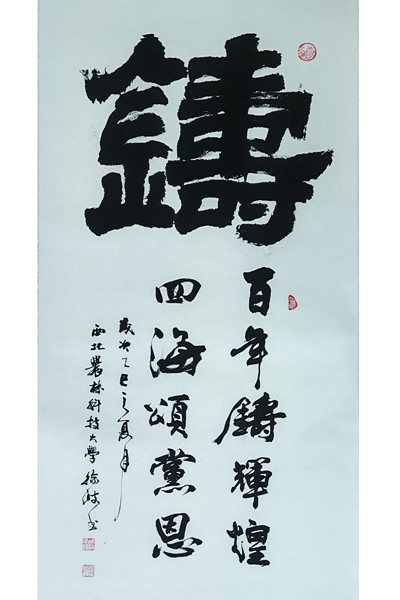 鑄
百年鑄輝煌
四海頌黨恩
歲次乙巳之夏月
西北農林科技大學徐波书